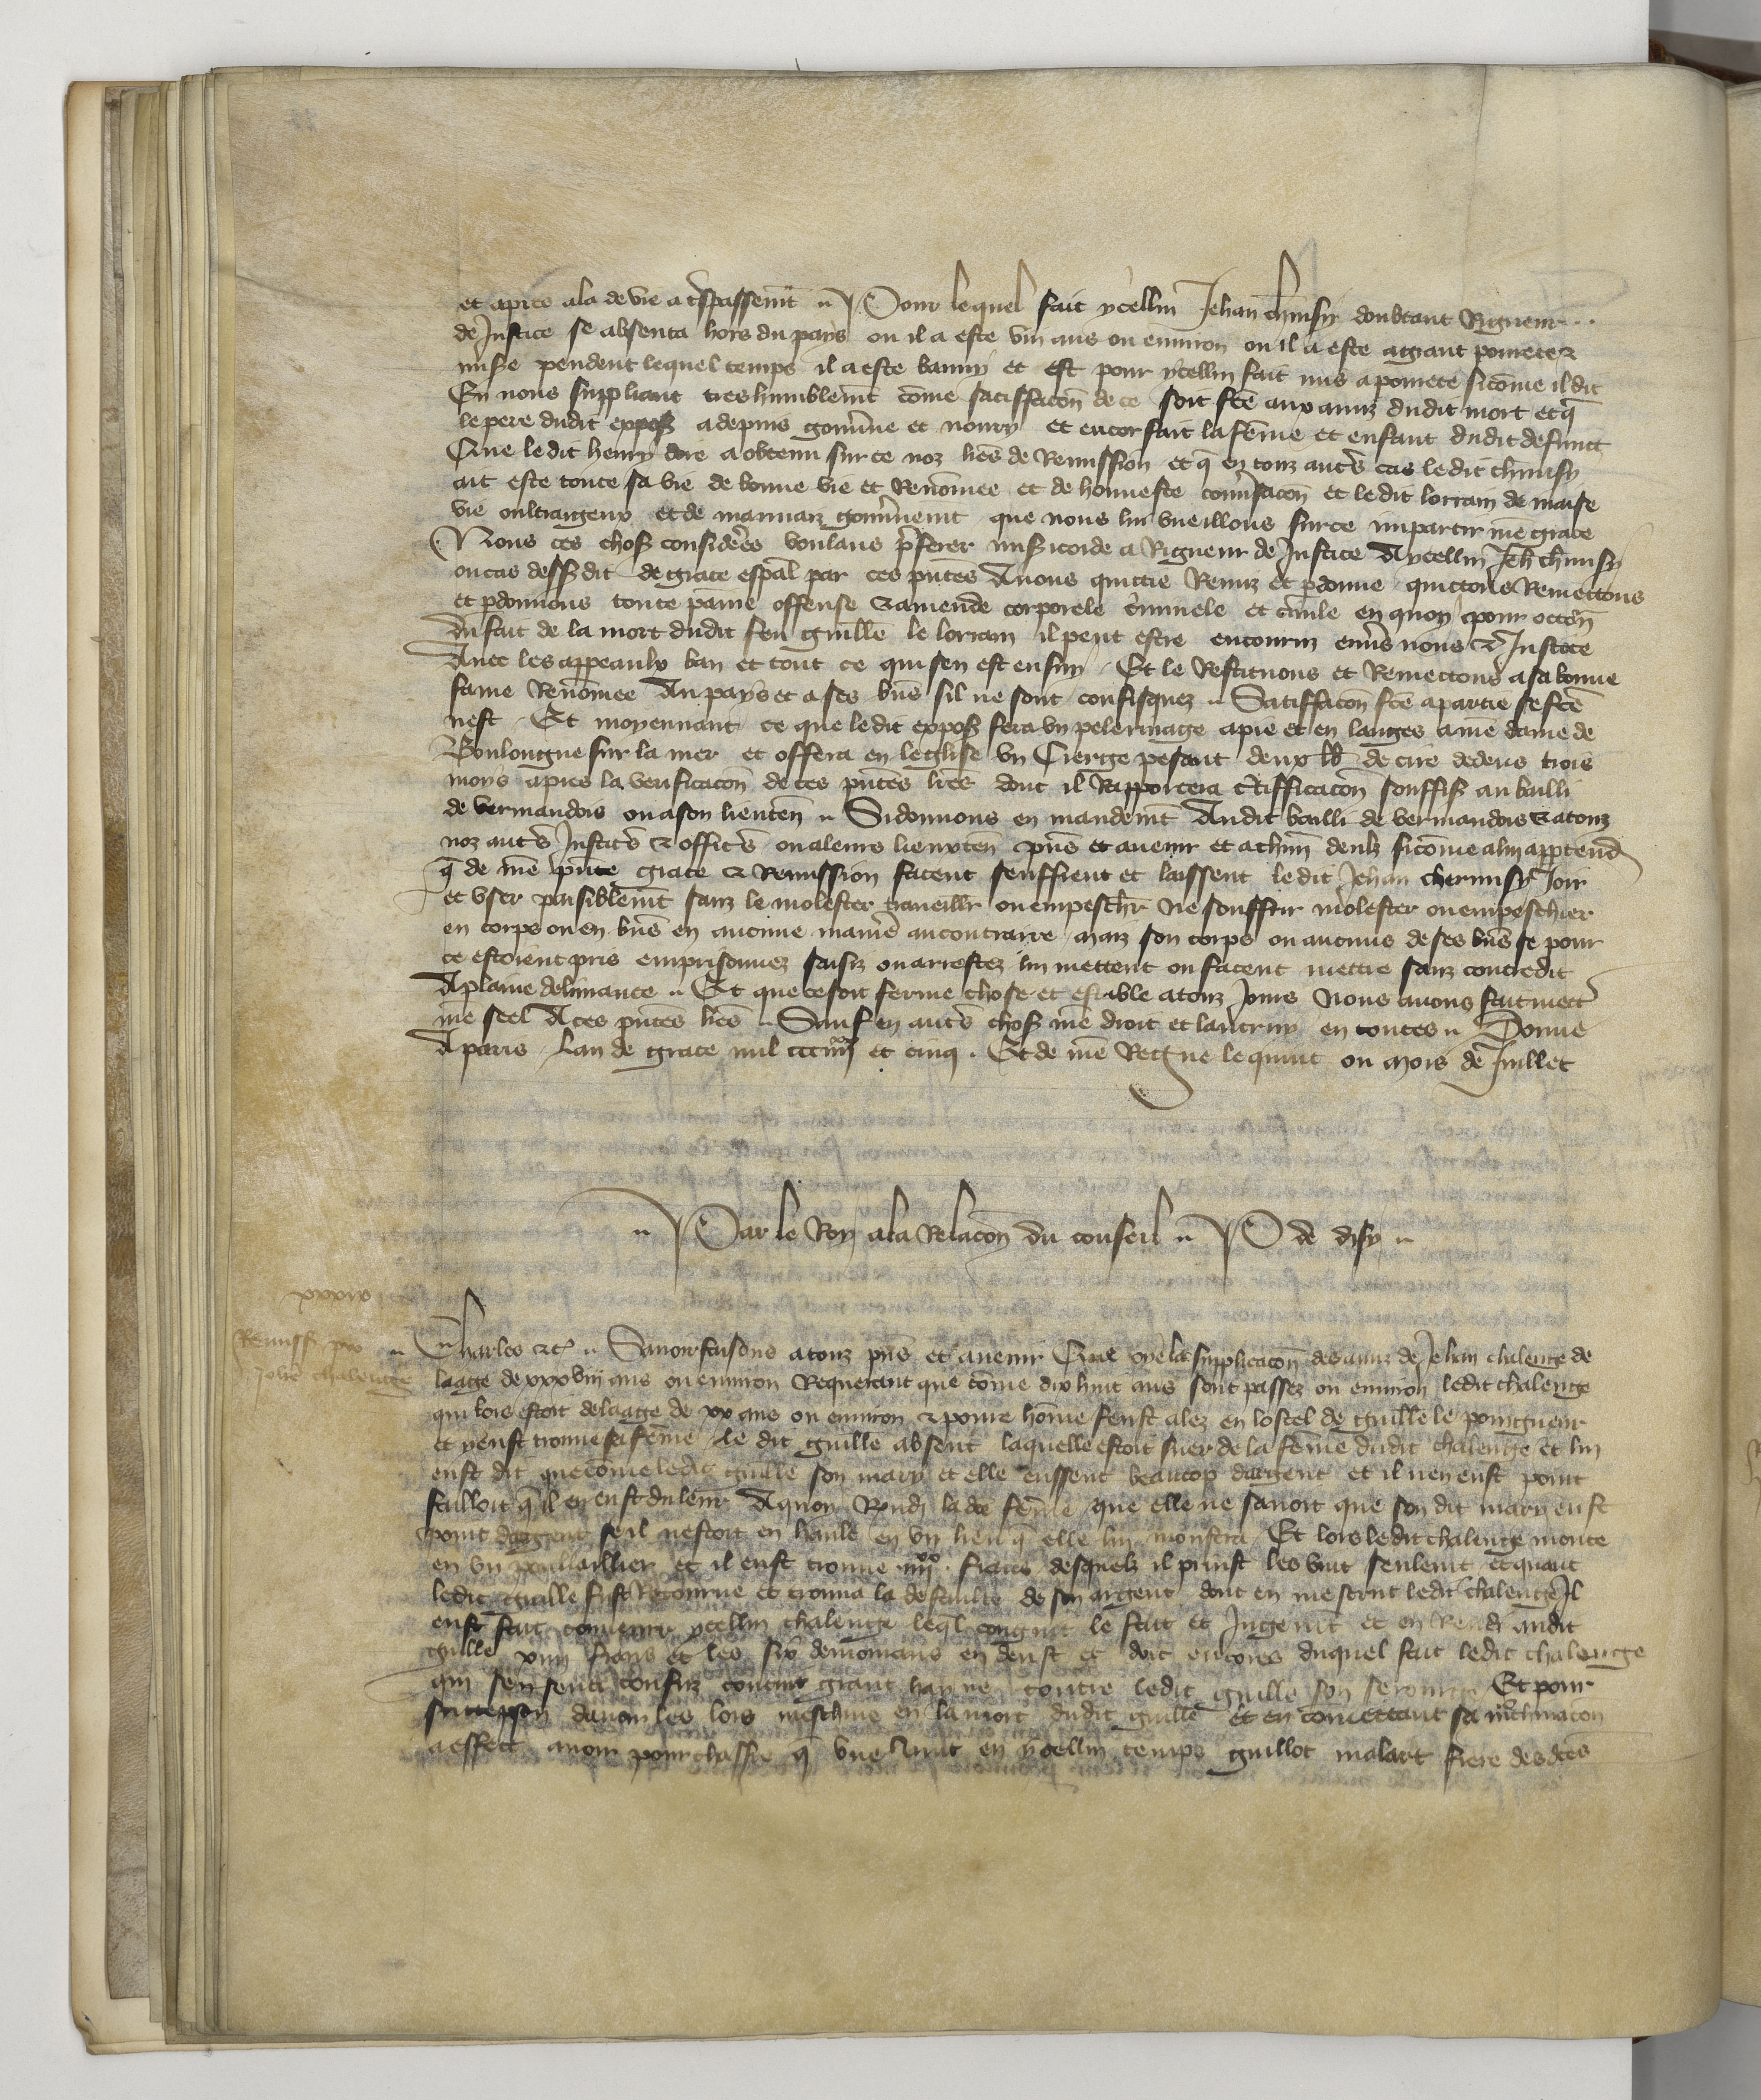 et apres ala de vie a trespassemt Pour lequel fait ycellui Jehan chimsy doubtant Rigueur
de Justice se absenta hors du pays ou il a este viii ans ou environ ou il a este a grant povrete et
misere pendent lequel temps il a este banny et est pour ycellui fait mis a povrete sicome il dit
En nous suppliant tres humblemt come satiffacon de ce soit fce aux amis dudit mort et q
le pere dudit expos a depuis gouvne et nourry et encor fait la feme et enfant dudit defunct
Que ledit henry doie a obtenu sur ce noz lres de Remission et q en touz autrs cas ledit chimsy
ait este toute sa vie de bonne vie et Renomee et de honneste convsacon et ledit lorrain de maise
vie oultrageux et de mauvaiz gouvnemt que nous lui vueillons sur ce impartir nre grace
Nous ces choses considerees voulans preferer misicorde a Rigueur de Justice A ycellui Jeh chimsy
ou cas dessusdit de grace espal par ces pntes Avons quictie Remiz et pdonne quictons Remectons
et pdonnons toute paine offense et amende corporele cminele et civile en quoy pour occon
du fait de la mort dudit feu guille le lorrain il peut estre encouru envs nous et Justice
Avec les appeaulx ban et tout ce qui sen est ensuy Et le Restituons et Remectons a sa bonne
fame Renomee Au pays et a ses bns sil ne sont confisquez Satiffacon fce a partie se fce
nest Et moyennant ce que ledit expos fera un pelerinage a pie et en langes a nre dame de
Boulongne sur la mer et offera en leglise un Cierge pesant deux lb de cire dedens trois
moys apres la verificacon de ces pntes lres dont il Rapportera certifficacon souffis au bailli
de vermandois ou a son lieuten Si donnons en mandemt Audit bailli de vermandois et a touz
noz autrs Justicrs et officrs ou a leurs lieuxten pns et avenir et a chun deulx sicome a lui apptend
q de nre pnte grace et Remission facent seuffrent et laissent ledit Jehan cherimsy Joir
et user paisiblemt sanz le molester travaillr ou empeschr Ne souffrir molester ou empeschier
en corps ou en bns en aucune manie au contraire maiz son corps ou aucuns de ses bns se pour
ce estoient pris emprisonnez saisiz ou arrestez lui mettent ou facent mettre sanz contredit
A plaine delivrance Et que ce soit ferme chose et estable a touz Jours Nous avons fait mectr
nre seel A ces pntes lres Sauf en autrs choses nre droit et lautruy en toutes Donne
A paris Lan de grace mil ccc iiiixx et cinq Et de nre Regne le quint ou mois de Juillet
Par le Roy a la Relacon du conseil P de disy
xxxix
Remiss pro
Johe chalenge
Charles etc Savoir faisons a touz pns et avenir Que oye la supplicacon des amis de Jehan chalenge de
laage de xxxviii ans ou environ Requerant que come dix huit ans sont passez ou environ ledit chalenge
qui lors estoit de laage de xx ans ou environ et povre home feust alez en lostel de guille le poingneur
et y eust trouve sa feme le dit guille absent laquelle estoit suer de la feme dudit chalenge et lui
eust dit que come ledit guille son mary et elle eussent beaucop dargent et il nen eust point
failloit q il en eust du leur A quoy Rendi la dce feme que elle ne savoit que son dit mary eust
point dargent se il nestoit en hault en un lieu q elle lui monstra Et lors ledit chalenge monte
en un poullaillier et il eust trouve iiiixx frans desquelx il prinst les vint seulemt et quant
ledit guille fust Retourne et trouva la defaulte de son argent dont en mescrut ledit chalenge Il
eust fait convenir ycellui chalenge leql congnut le fait et Jugemt et en Rendi audit
guille xiiii frans et les six demourans en deust et doit encores duquel fait ledit chalenge
qui sen senti confuz concut grant hayne contre ledit guille son serourge Et pour
davoir les lors meschine en la mort dudit guille et en comettant sa machinacon
a effect avoir pourchassie q une Nuit en ycellui temps guillot malart frere des dces